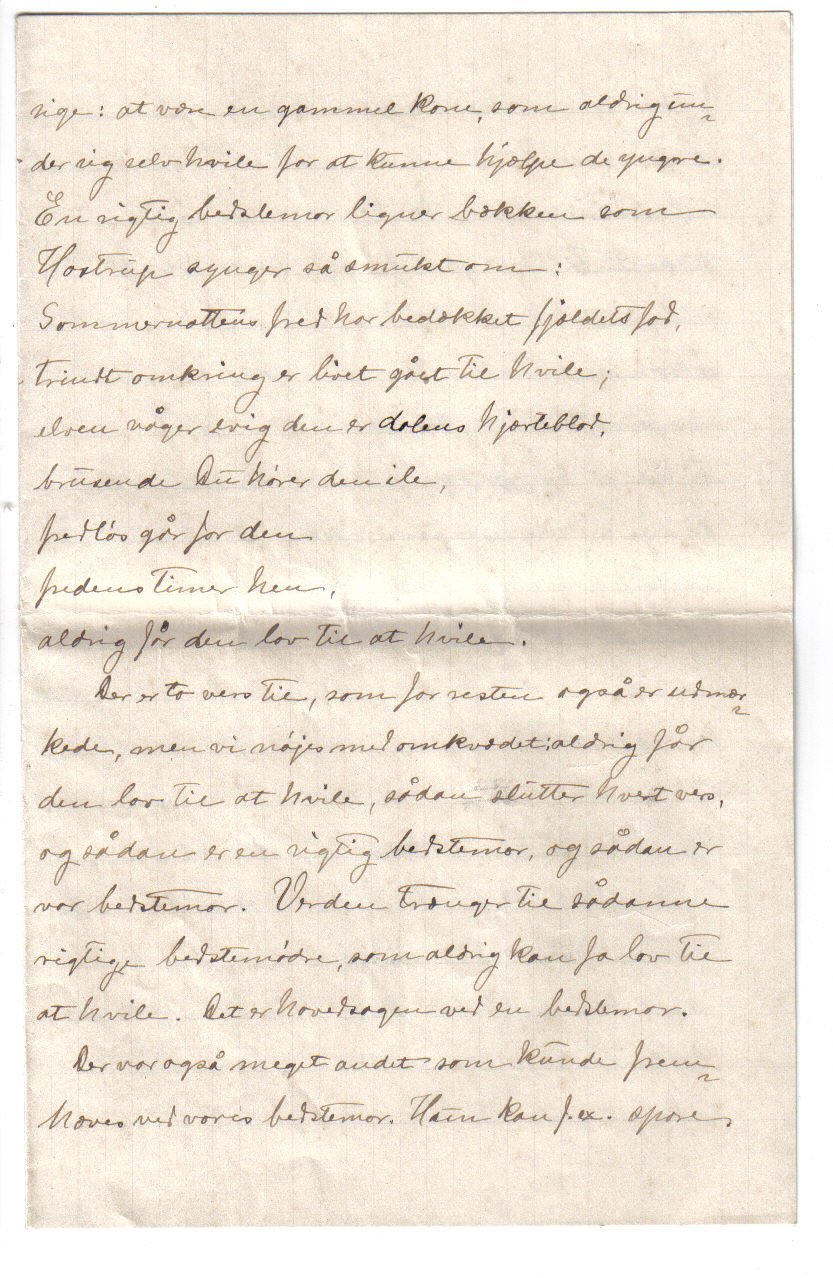 sige: at være en gammel kone, som aldrig un-
der sig selv hvile for at kunne hjælpe de yngre.
En rigtig bedstemor ligner bækken som
Hostrup synger så smukt om:
Sommernattens fred har bedækket fjældets fod,
trindt omkring er livet gået til hvile;
elven våger evig den er dalens hjærteblod,
brusende Du hører den ile,
fredløs går for den
fredens timer hen,
aldrig får den lov til at hvile.
Der er to vers til, som for resten også er udmær-
kede, men vi nøjes med omkvædet: aldrig får
den lov til at hvile, sådan slutter hvert vers,
og sådan er en rigtig bedstemor, og sådan er
vor bedstemor. Verden trænger til sådanne
rigtige bedstemødre, som aldrig kan fa lov til
at hvile. Det er hovedsagen ved en bedstemor.
Der var også meget andet som kunde frem-
hæves ved vores bedstemor. Hun kan f.ex. spare,